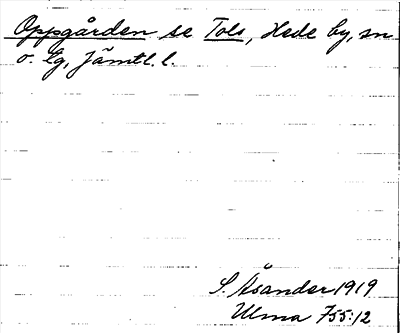 Oppgården se Tols, Hede by, sn
o. tg, Jämtl. l.
S. Åsander 1919
Ulma 755:12